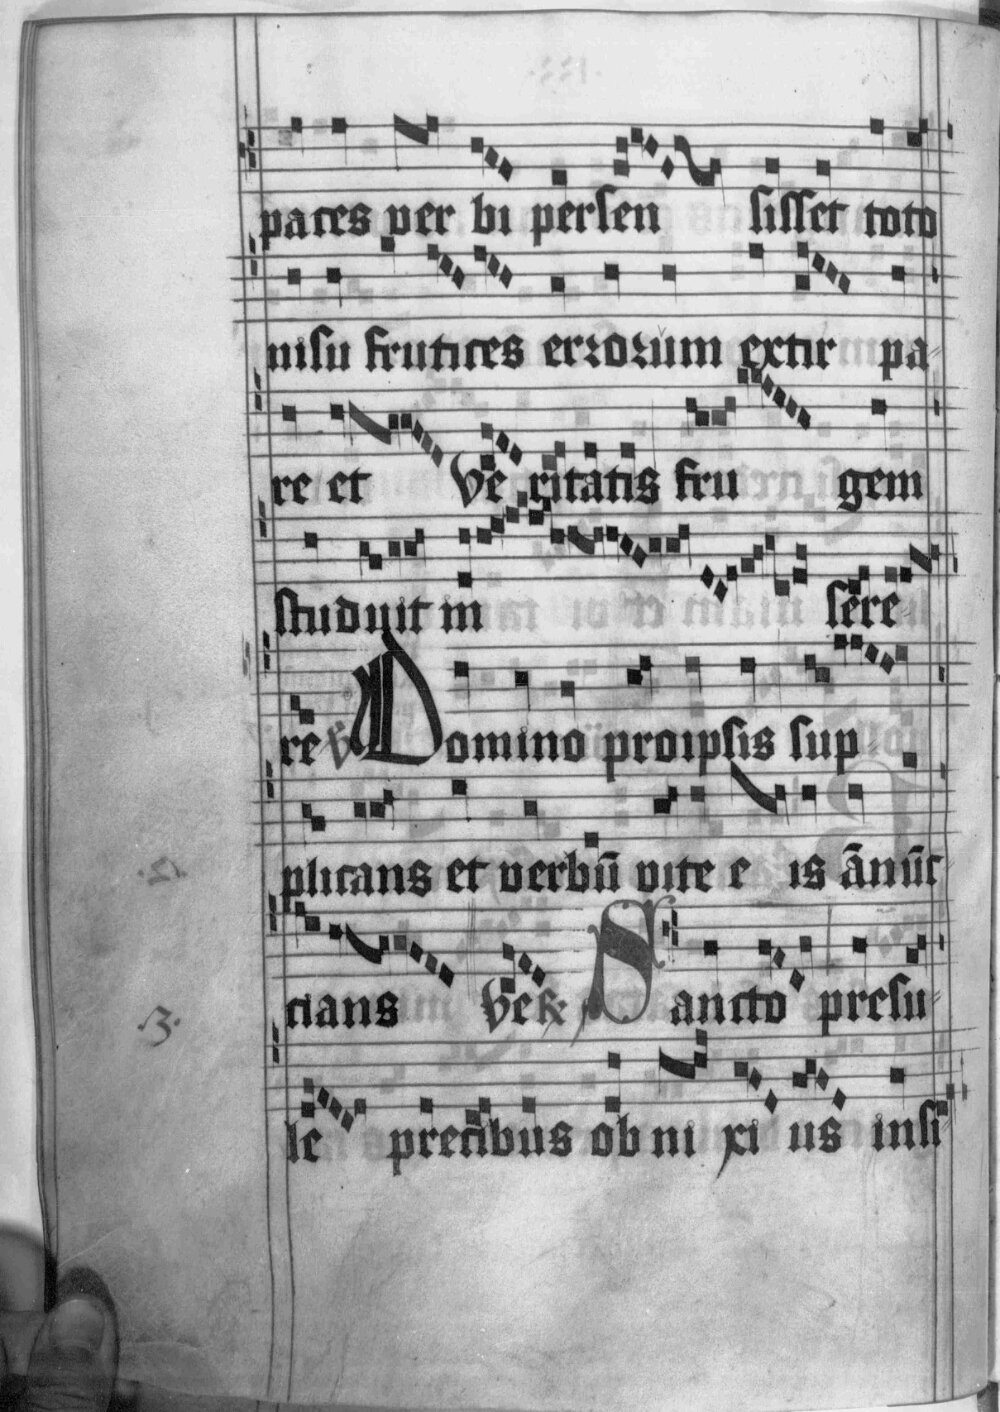 paces ver bi persen sisset toto
nisu frutices errorum extir pa
re et Ve ritatis fru gem
studuit in sere
re v̄ Domino pro ipsis sup
plicans et verbū vite e is ānūc
.2.
cians Ve R Sancto presu
.3.
le precibus ob ni xi us insi